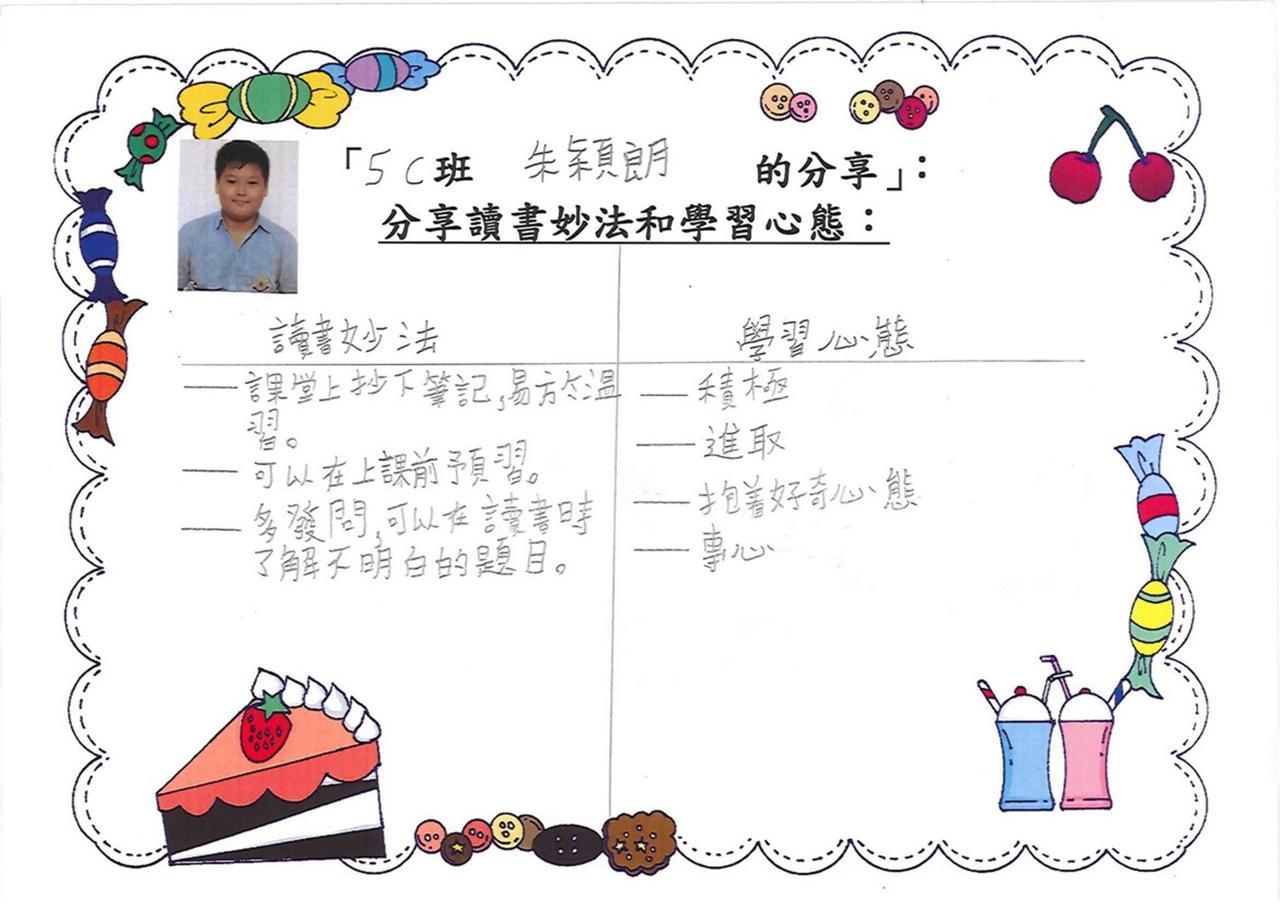 「5C班 朱穎朗 的分享」：
分享讀書妙法和學習心態：
讀書妙法
— 課堂上抄下筆記，易於溫
習。
— 可以在上課前預習。
— 多發問，可以在讀書時
了解不明白的題目。
學習心態
— 積極
— 進取
— 抱着好奇心態
— 專心